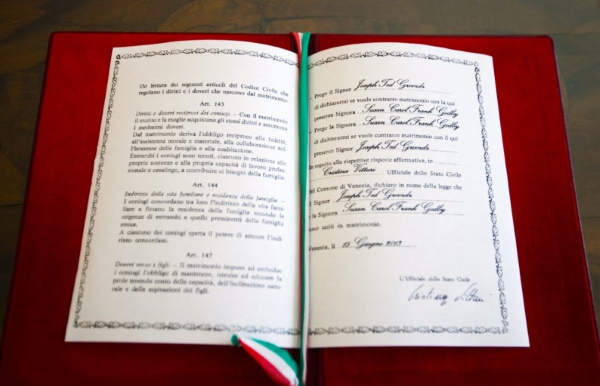 Do lettura dei seguenti articoli del Codice Civile che
regolano i diritti e i doveri che nascono dal matrimonio:
Art. 143
Diritti e doveri reciproci dei coniugi. – Con il matrimonio
il marito e la moglie acquistano gli stessi diritti e assumono
i medesimi doveri.
Dal matrimonio deriva l'obbligo reciproco alla fedeltà,
all'assistenza morale e materiale, alla collaborazione nell'
interesse della famiglia e alla coabitazione.
Entrambi i coniugi sono tenuti, ciascuno in relazione alle
proprie sostanze e alla propria capacità di lavoro profes-
sionale o casalingo, a contribuire ai bisogni della famiglia.
Art. 144
Indirizzo della vita familiare e residenza della famiglia. –
I coniugi concordano tra loro l'indirizzo della vita fami-
liare e fissano la residenza della famiglia secondo le
esigenze di entrambi e quelle preminenti della famiglia
stessa.
A ciascuno dei coniugi spetta il potere di attuare l'indi-
rizzo concordato.
Art. 147
Doveri verso i figli. – Il matrimonio impone ad ambedue
i coniugi l'obbligo di mantenere, istruire ed educare la
prole tenendo conto delle capacità, dell'inclinazione natu-
rale e delle aspirazioni dei figli.
Prego il Signor Joseph Ted
di dichiararmi se vuole contrarre matrimonio con la qui
presente Signora Susan Carol Frank
Prego la Signora Susan Carol Frank
di dichiararmi se vuole contrarre matrimonio con il qui
presente Signor Joseph Ted
In seguito alle rispettive risposte affermative, io
Cristina Vittori Ufficiale dello Stato Civile
del Comune di Venezia, dichiaro in nome della legge che
il Signor Joseph Ted
e la Signora Susan Carol Frank
sono uniti in matrimonio.
Venezia, lì Giugno
L'Ufficiale dello Stato Civile